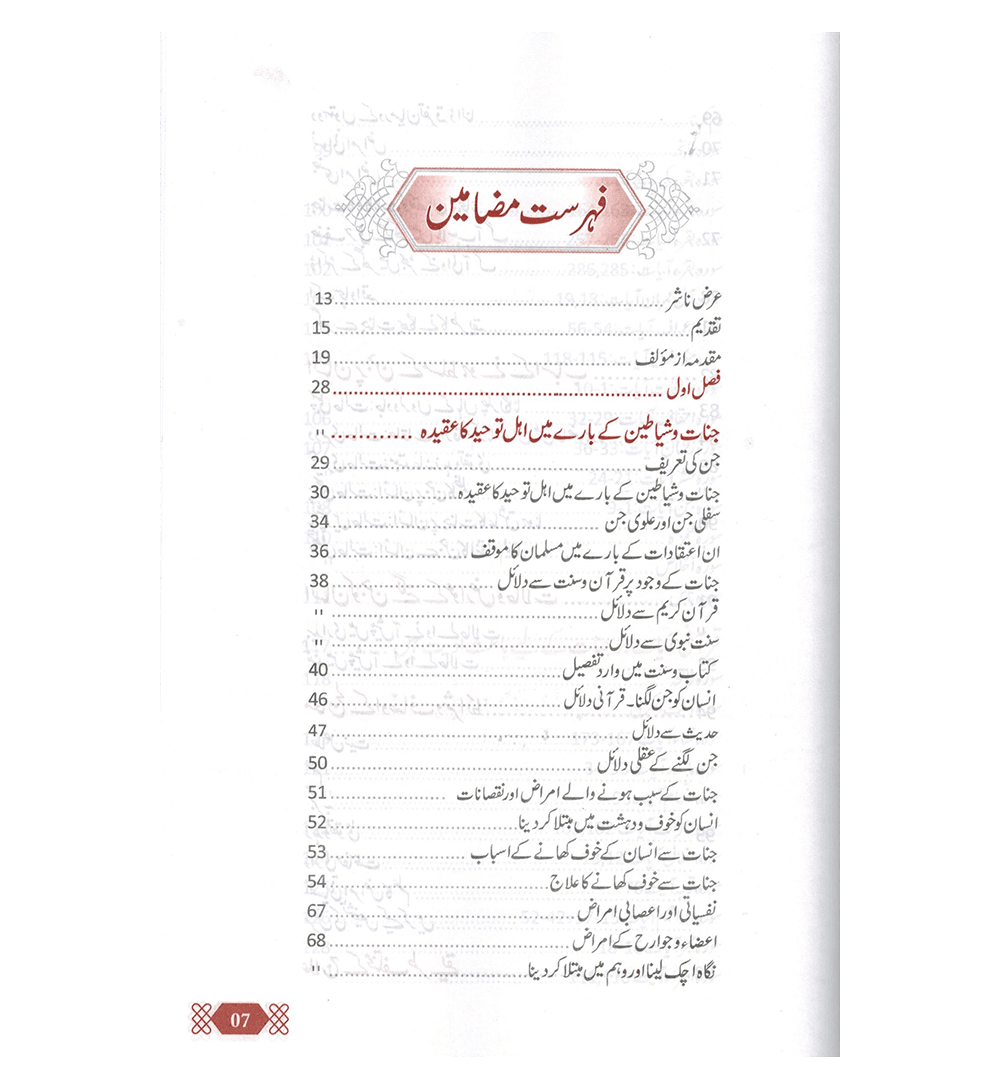 فہرست مضامین
عرض ناشر ........ 13
تقدیم ........ 15
مقدمہ از مؤلف ........ 19
فصل اول ........ 28
جنات و شیاطین کے بارے میں اہل توحید کا عقیدہ ........ "
جن کی تعریف ........ 29
جنات و شیاطین کے بارے میں اہل توحید کا عقیدہ ........ 30
سفلی جن اور علوی جن ........ 34
ان اعتقادات کے بارے میں مسلمان کا موقف ........ 36
جنات کے وجود پر قرآن و سنت سے دلائل ........ 38
قرآن کریم سے دلائل ........ "
سنت نبوی سے دلائل ........ "
کتاب و سنت میں وارد تفصیل ........ 40
انسان کو جن لگنا۔ قرآنی دلائل ........ 46
حدیث سے دلائل ........ 47
جن لگنے کے عقلی دلائل ........ 50
جنات کے سبب ہونے والے امراض اور نقصانات ........ 51
انسان کو خوف و دہشت میں مبتلا کر دینا ........ 52
جنات سے انسان کے خوف کھانے کے اسباب ........ 53
جنات سے خوف کھانے کا علاج ........ 54
نفسیاتی اور اعصابی امراض ........ 67
اعضاء و جوارح کے امراض ........ 68
نگاہ اچک لینا اور وہم میں مبتلا کر دینا ........ "
07